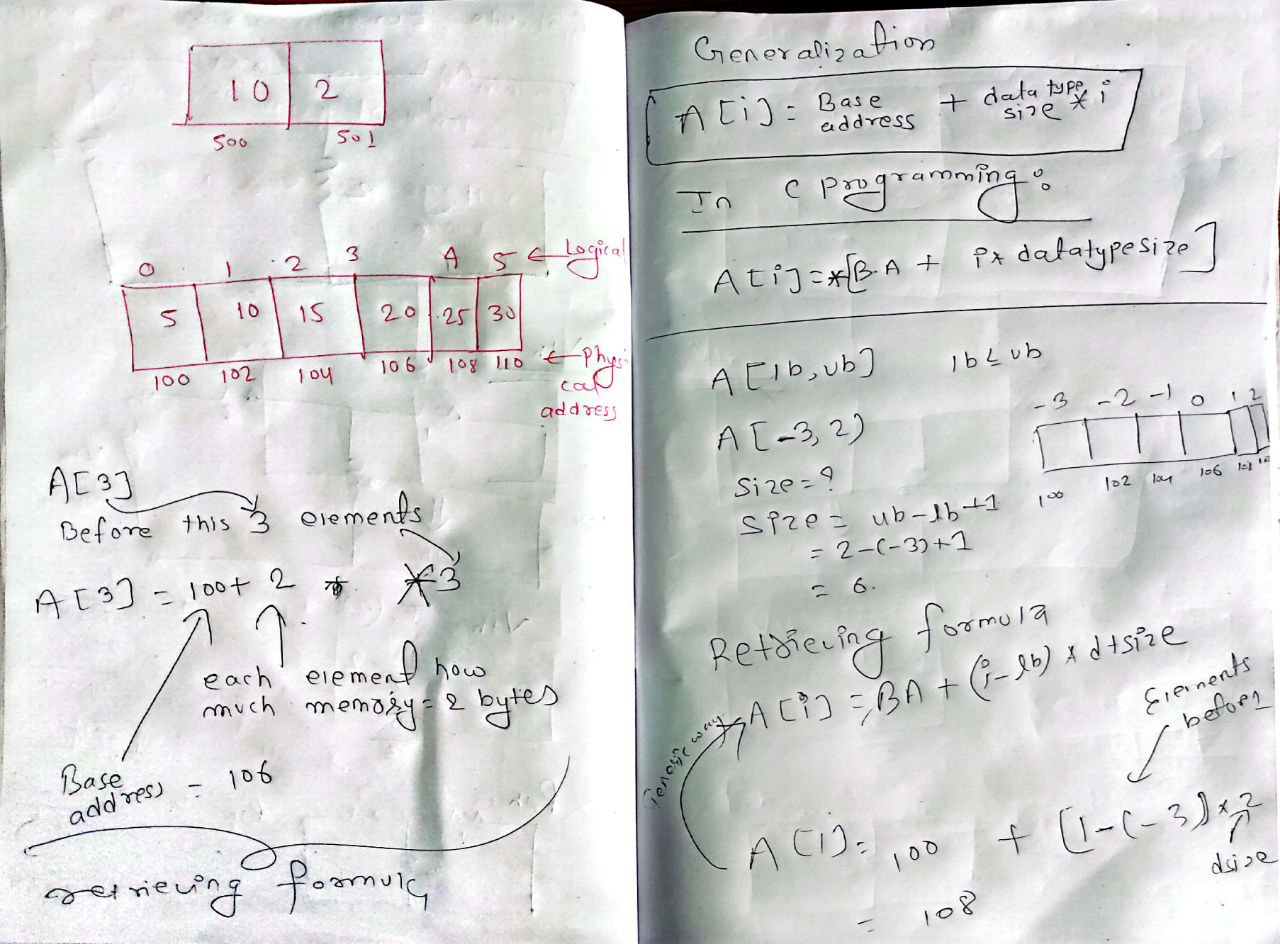 10 2
500 501
0 1 2 3 4 5 ← Logical
5 10 15 20 25 30
100 102 104 106 108 110 ← Physi
cal
address
A[3]
Before this 3 elements
A[3] = 100+ 2 * *3
each element how
much memory = 2 bytes
Base
address = 106
retrieving formula
Generalization
A[i] = Base address + data type size * i
In C Programming:
A[i]=*[B.A + i* datatypesize]
A[lb,ub] lb ≤ ub
A[-3,2)
-3 -2 -1 0 1 2
100 102 104 106 108
Size = ?
Size = ub-lb+1
= 2-(-3)+1
= 6.
Retrieving formula
A[i] = BA + (i-lb) * dtsize
Elements
before 1
A[1]= 100 + [1-(-3)]*2
dsize
= 108